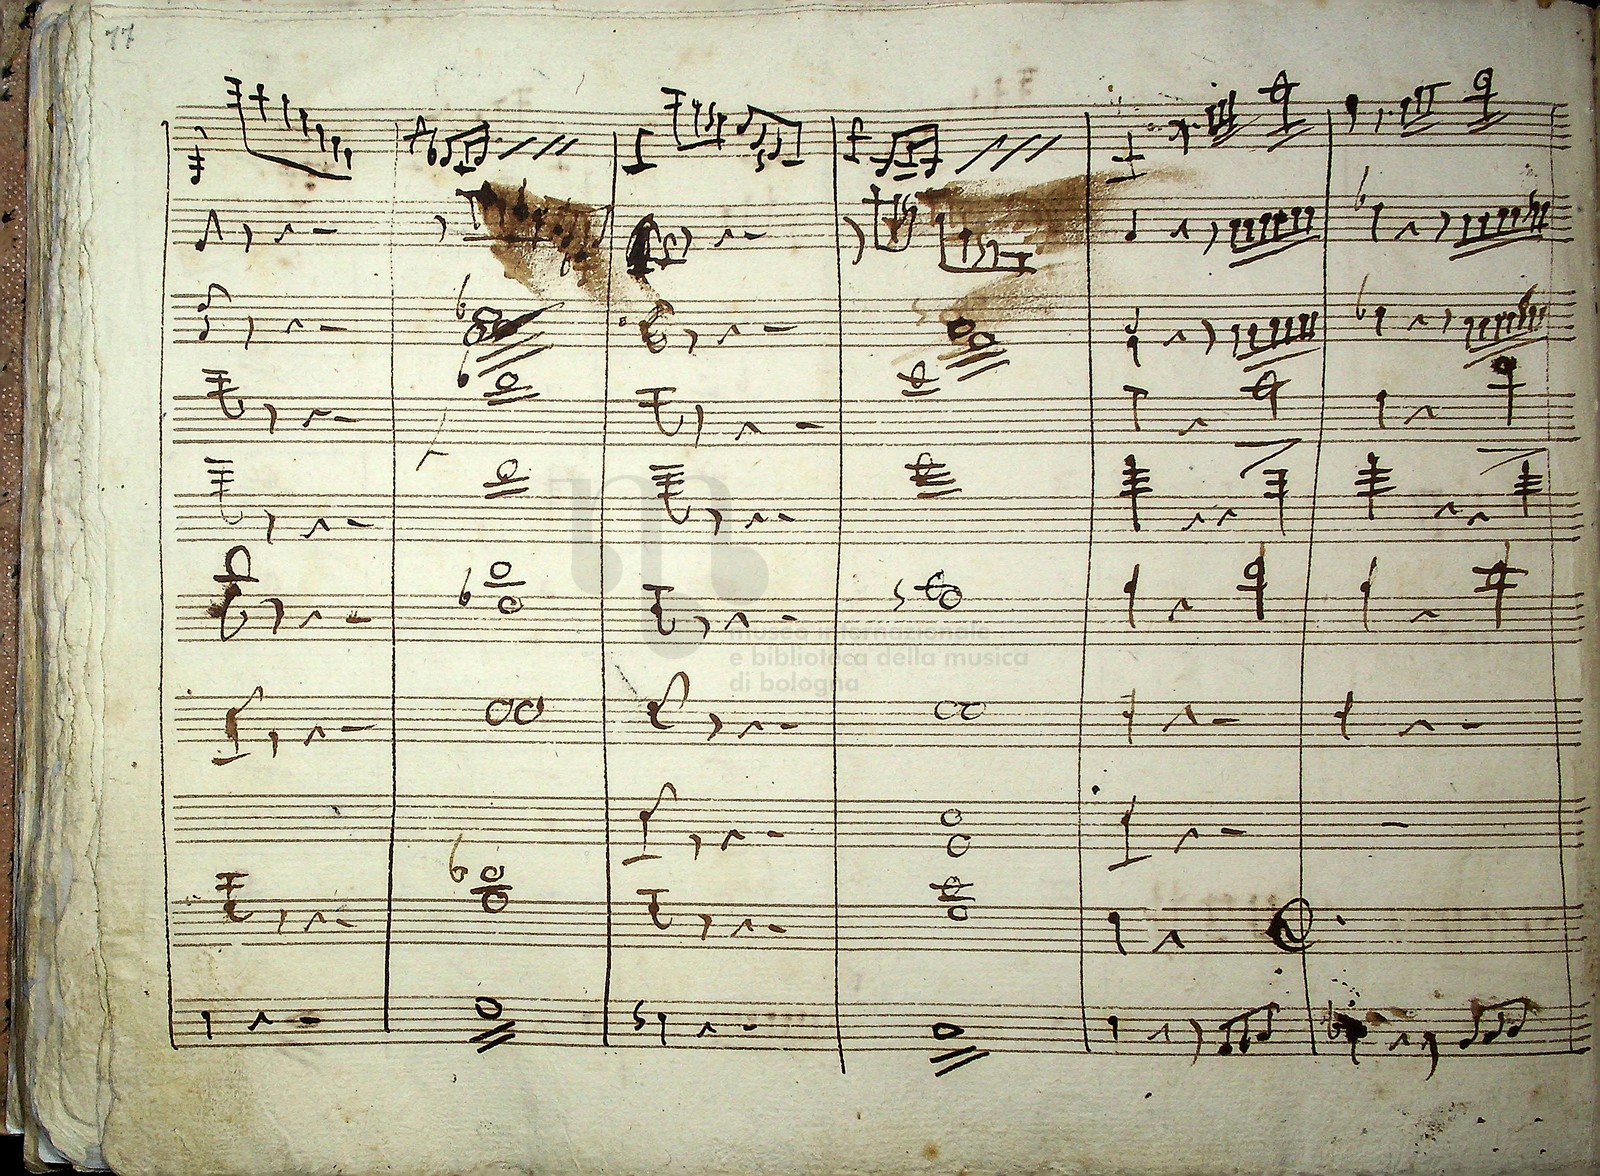 77
museo internazionale
e biblioteca della musica
di bologna